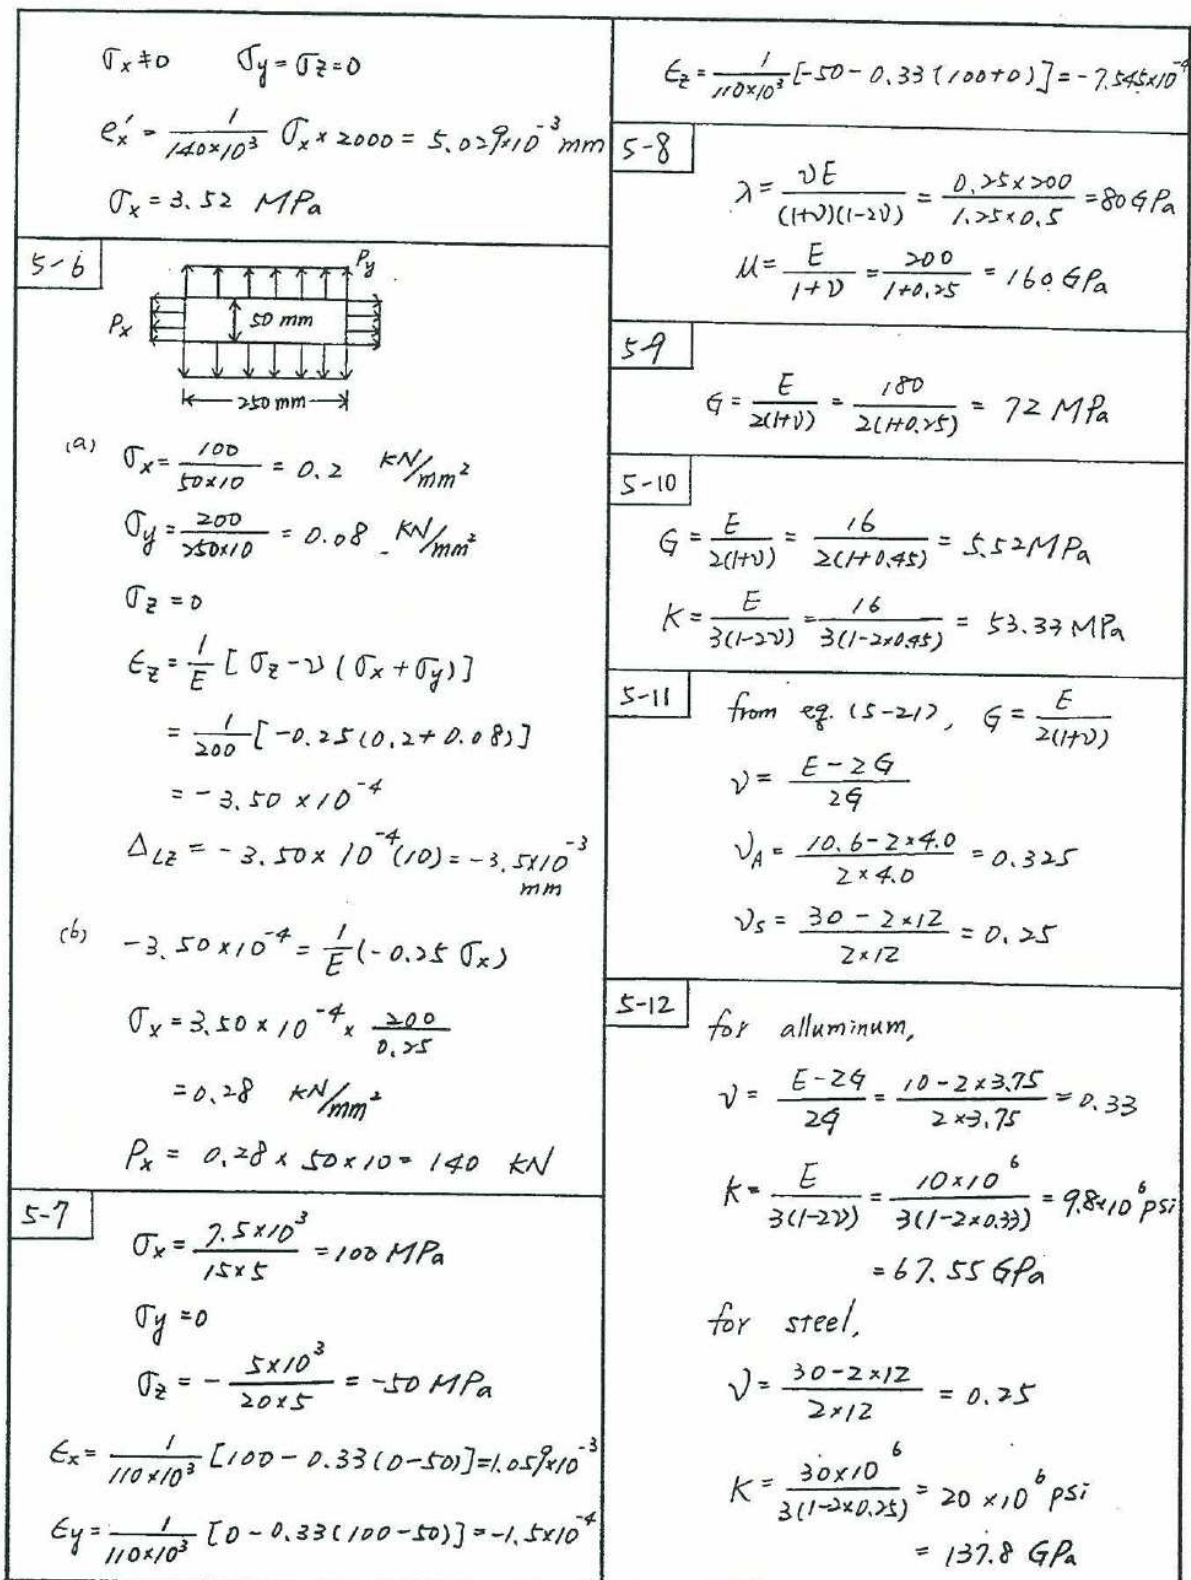 σx ≠ 0   σy = σz = 0
ex' = 1/(140×10³) σx × 2000 = 5.029×10⁻³ mm
σx = 3.52 MPa
5-6
Py
Px
50 mm
250 mm
(a) σx = 100/(50×10) = 0.2 KN/mm²
σy = 200/(250×10) = 0.08 KN/mm²
σz = 0
εz = 1/E [σz - ν(σx + σy)]
= 1/200 [-0.25(0.2 + 0.08)]
= -3.50 × 10⁻⁴
ΔLz = -3.50 × 10⁻⁴(10) = -3.5×10⁻³
mm
(b) -3.50×10⁻⁴ = 1/E (-0.25 σx)
σx = 3.50 × 10⁻⁴ × 200/0.25
= 0.28 KN/mm²
Px = 0.28 × 50×10 = 140 KN
5-7
σx = 7.5×10³/(15×5) = 100 MPa
σy = 0
σz = - 5×10³/(20×5) = -50 MPa
εx = 1/(110×10³) [100 - 0.33(0-50)] = 1.059×10⁻³
εy = 1/(110×10³) [0 - 0.33(100-50)] = -1.5×10⁻⁴
εz = 1/(110×10³) [-50 - 0.33(100+0)] = -7.545×10⁻⁴
5-8
λ = νE/((1+ν)(1-2ν)) = (0.25×200)/(1.25×0.5) = 80 GPa
μ = E/(1+ν) = 200/(1+0.25) = 160 GPa
5-9
G = E/(2(1+ν)) = 180/(2(1+0.25)) = 72 MPa
5-10
G = E/(2(1+ν)) = 16/(2(1+0.45)) = 5.52 MPa
K = E/(3(1-2ν)) = 16/(3(1-2×0.45)) = 53.33 MPa
5-11
from eq. (5-21), G = E/(2(1+ν))
ν = (E-2G)/(2G)
νA = (10.6-2×4.0)/(2×4.0) = 0.325
νs = (30-2×12)/(2×12) = 0.25
5-12
for alluminum,
ν = (E-2G)/(2G) = (10-2×3.75)/(2×3.75) = 0.33
K = E/(3(1-2ν)) = (10×10⁶)/(3(1-2×0.33)) = 9.8×10⁶ psi
= 67.55 GPa
for steel,
ν = (30-2×12)/(2×12) = 0.25
K = (30×10⁶)/(3(1-2×0.25)) = 20×10⁶ psi
= 137.8 GPa